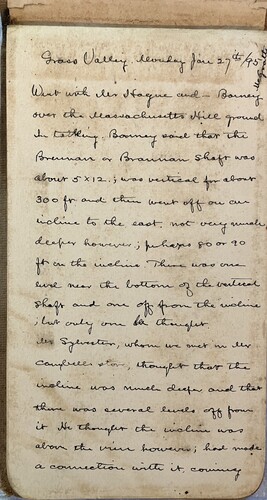 Grass Valley, Monday Jan 29th/95
Went with Mr Hague and - Barney
over the Massachusetts Hill ground
In talking, Barney said that the
Brennan or Brannan shaft was
about 5x12; was vertical for about
300 ft and then went off on an
incline to the east, not very much
deeper however; perhaps 80 or 90
ft on the incline. There was one
level near the bottom of the vertical
shaft and one off from the incline
; but only one he thought
Mr Sylvester, whom we met in Mr
Campbells store, thought that the
incline was much deeper and that
there was several levels off from
it He thought the incline was
above the vein however; had made
a connection with it, coming